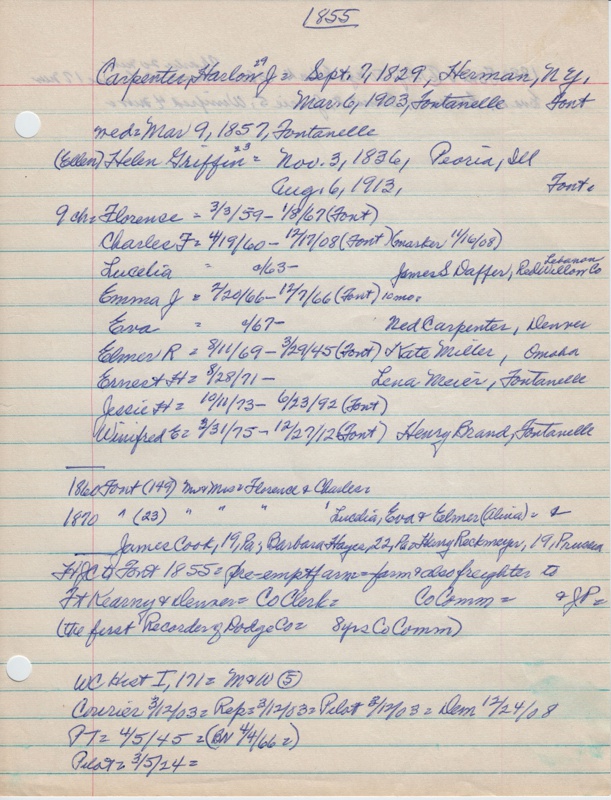 1855
Carpenter, Harlow J = Sept. 7, 1829, Herman, N.Y.
29
Mar. 6, 1903, Fontanelle Font
med = Mar 9, 1857, Fontanelle
(Ellen) Helen Griffin = Nov. 3, 1836, Peoria, Ill
Aug. 6, 1913, Font.
9 ch = Florence = 3/3/59 - 1/8/67 (Font)
Charles F = 4/19/60 - 12/17/08 (Font) (marker 11/16/08)
Lucelia " c/63 - James S Daffer, Red Willow Co
Lebanon
Emma J = 2/20/66 - 12/7/66 (Font) 10 mo =
Eva = c/67 - Ned Carpenter, Denver
Elmer R = 8/11/69 - 3/29/45 (Font) Kate Miller, Omaha
Ernest H = 8/28/71 - Lena Meier, Fontanelle
Jessie H = 10/11/73 - 6/23/92 (Font)
Winifred E = 3/31/75 - 12/27/12 (Font) Henry Brand, Fontanelle
1860 Font (149) Mr & Mrs = Florence & Charles =
1870 " (23) " " " ' Lucelia, Eva & Elmer (Alivia) = &
James Cook, 19, Pa; Barbara Hayes, 22, Pa = Henry Reckmeyer, 19, Prussia
HJC to Font 1855 = pre-empt farm = farm & also freighter to
Ft Kearny & Denver = Co Clerk = Co Comm = & J P =
(the first Recorder of Dodge Co = 8 yrs Co Comm)
WC Hist I, 171 = M & W (5)
Courier 3/12/03 = Rep = 3/12/03 = Pilot 3/12/03 = Dem 12/24/08
PT = 4/5/45 = (BN 4/4/66 =)
Pilot = 3/5/24 =